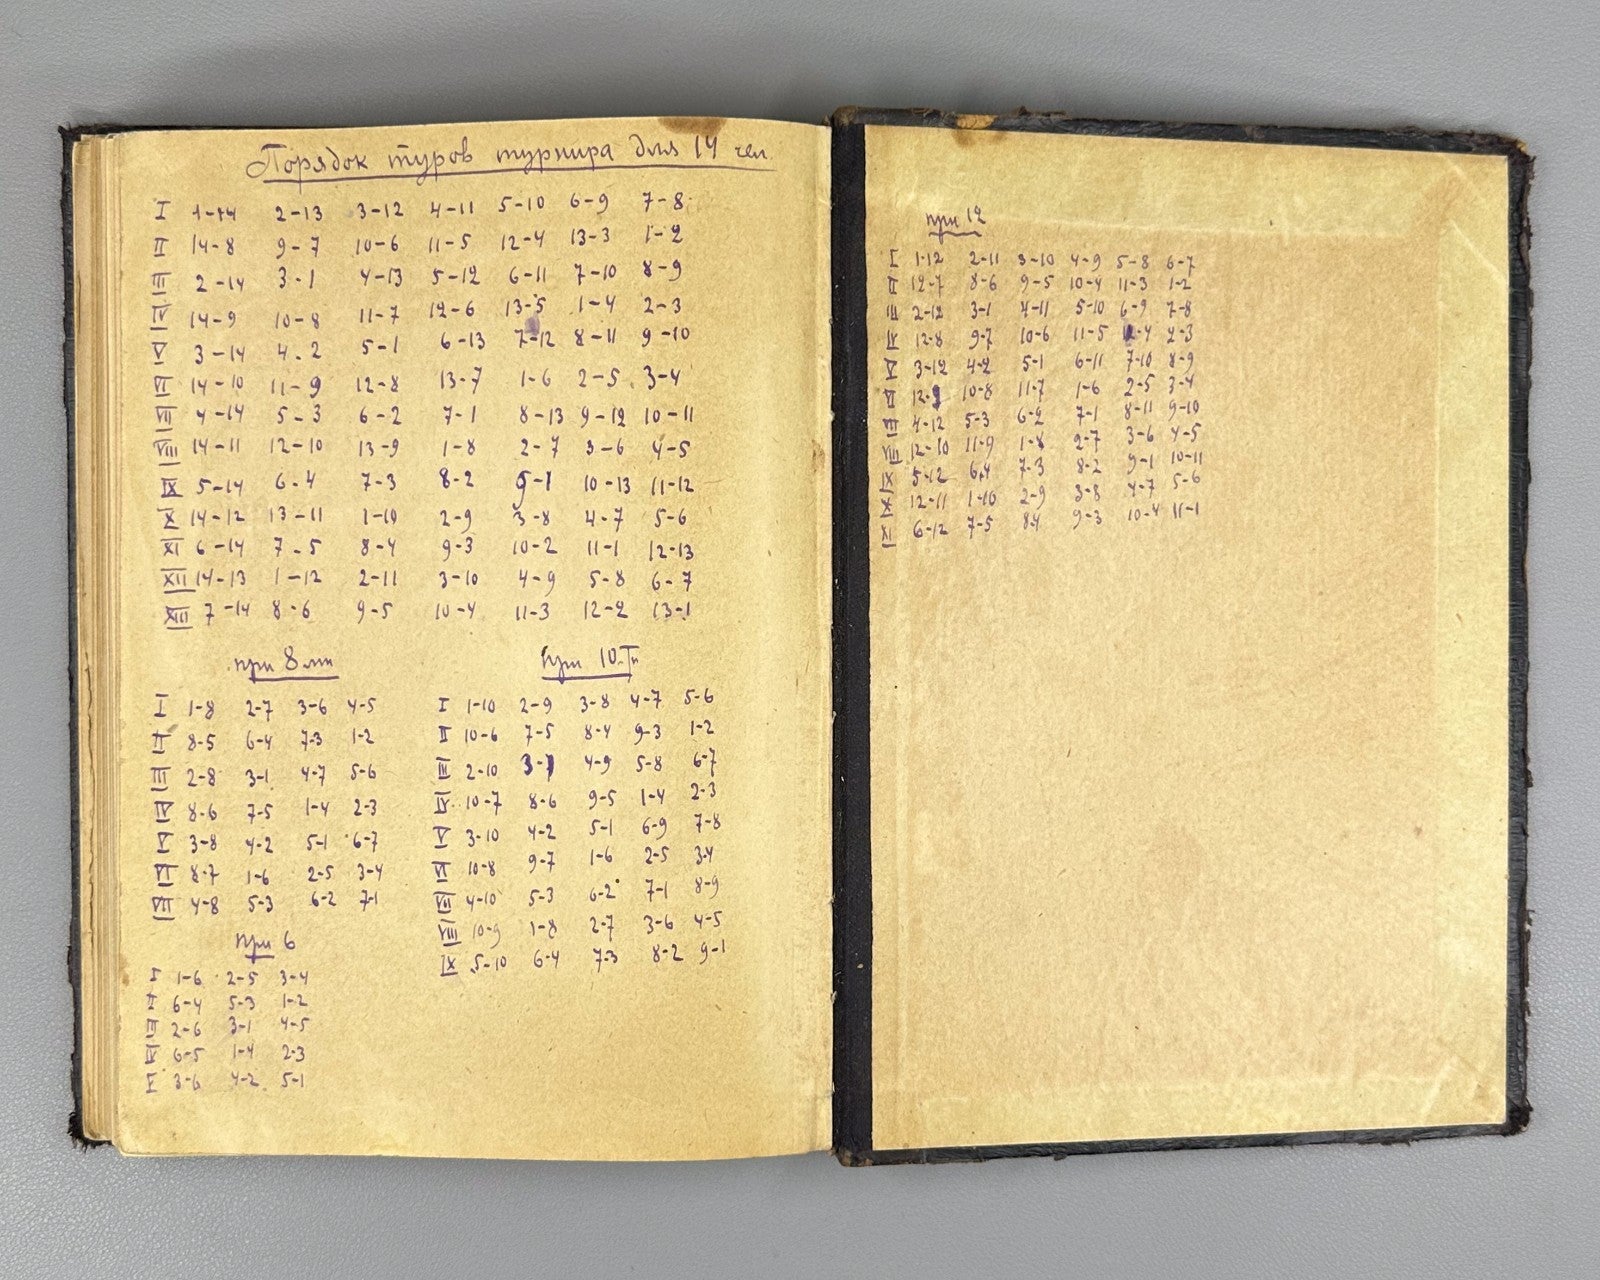 Порядок туров турнира для 14 чел.
I 1-14 2-13 3-12 4-11 5-10 6-9 7-8
II 14-8 9-7 10-6 11-5 12-4 13-3 1-2
III 2-14 3-1 4-13 5-12 6-11 7-10 8-9
IV 14-9 10-8 11-7 12-6 13-5 1-4 2-3
V 3-14 4-2 5-1 6-13 7-12 8-11 9-10
VI 14-10 11-9 12-8 13-7 1-6 2-5 3-4
VII 4-14 5-3 6-2 7-1 8-13 9-12 10-11
VIII 14-11 12-10 13-9 1-8 2-7 3-6 4-5
IX 5-14 6-4 7-3 8-2 9-1 10-13 11-12
X 14-12 13-11 1-10 2-9 3-8 4-7 5-6
XI 6-14 7-5 8-4 9-3 10-2 11-1 12-13
XII 14-13 1-12 2-11 3-10 4-9 5-8 6-7
XIII 7-14 8-6 9-5 10-4 11-3 12-2 13-1
при 8 ми
I 1-8 2-7 3-6 4-5
II 8-5 6-4 7-3 1-2
III 2-8 3-1 4-7 5-6
IV 8-6 7-5 1-4 2-3
V 3-8 4-2 5-1 6-7
VI 8-7 1-6 2-5 3-4
VII 4-8 5-3 6-2 7-1
при 6
I 1-6 2-5 3-4
II 6-4 5-3 1-2
III 2-6 3-1 4-5
IV 6-5 1-4 2-3
V 3-6 4-2 5-1
при 10-ти
I 1-10 2-9 3-8 4-7 5-6
II 10-6 7-5 8-4 9-3 1-2
III 2-10 3-1 4-9 5-8 6-7
IV 10-7 8-6 9-5 1-4 2-3
V 3-10 4-2 5-1 6-9 7-8
VI 10-8 9-7 1-6 2-5 3-4
VII 4-10 5-3 6-2 7-1 8-9
VIII 10-9 1-8 2-7 3-6 4-5
IX 5-10 6-4 7-3 8-2 9-1
при 12
I 1-12 2-11 3-10 4-9 5-8 6-7
II 12-7 8-6 9-5 10-4 11-3 1-2
III 2-12 3-1 4-11 5-10 6-9 7-8
IV 12-8 9-7 10-6 11-5 1-4 2-3
V 3-12 4-2 5-1 6-11 7-10 8-9
VI 12-9 10-8 11-7 1-6 2-5 3-4
VII 4-12 5-3 6-2 7-1 8-11 9-10
VIII 12-10 11-9 1-8 2-7 3-6 4-5
IX 5-12 6-4 7-3 8-2 9-1 10-11
X 12-11 1-10 2-9 3-8 4-7 5-6
XI 6-12 7-5 8-4 9-3 10-4 11-1